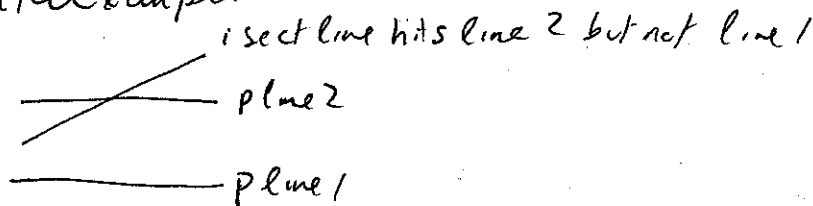 isect line hits line 2 but not line 1
pline2
pline1